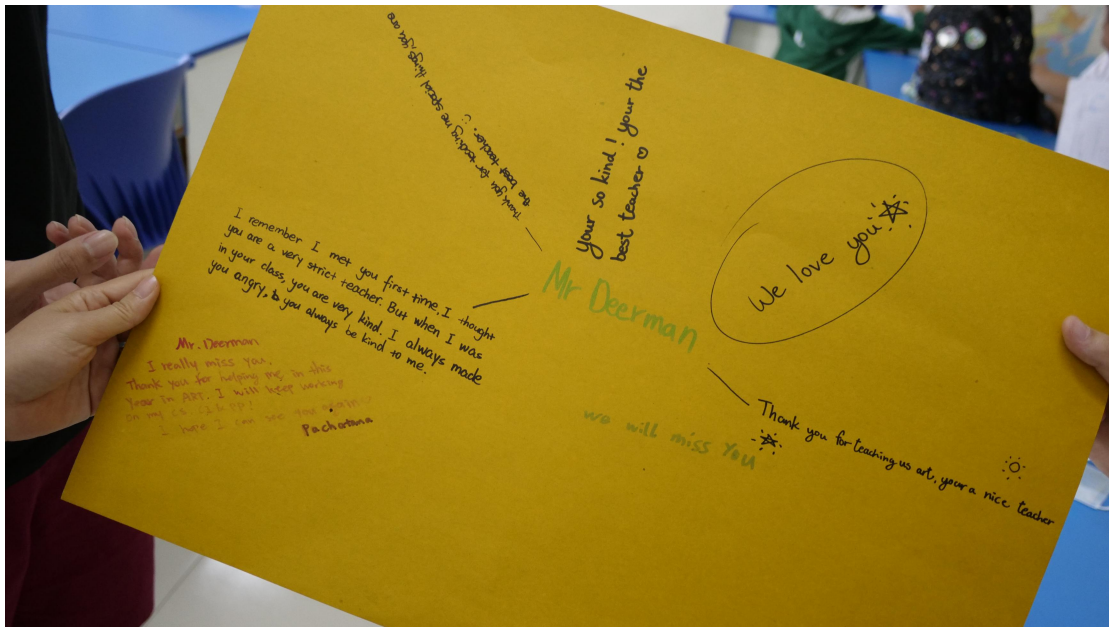 Thank you for teaching me special things, you are
the best teacher.
your so kind! your the
best teacher ♡
We love you
Mr Deerman
I remember I met you first time, I thought
you are a very strict teacher. But when I was
in your class, you are very kind. I always made
you angry, you always be kind to me.
Mr. Deerman
I really miss you.
Thank you for helping me in this
year in ART. I will keep working
on my
I hope I can see you again
Pachatana
we will miss You
Thank you for teaching us art, your a nice teacher